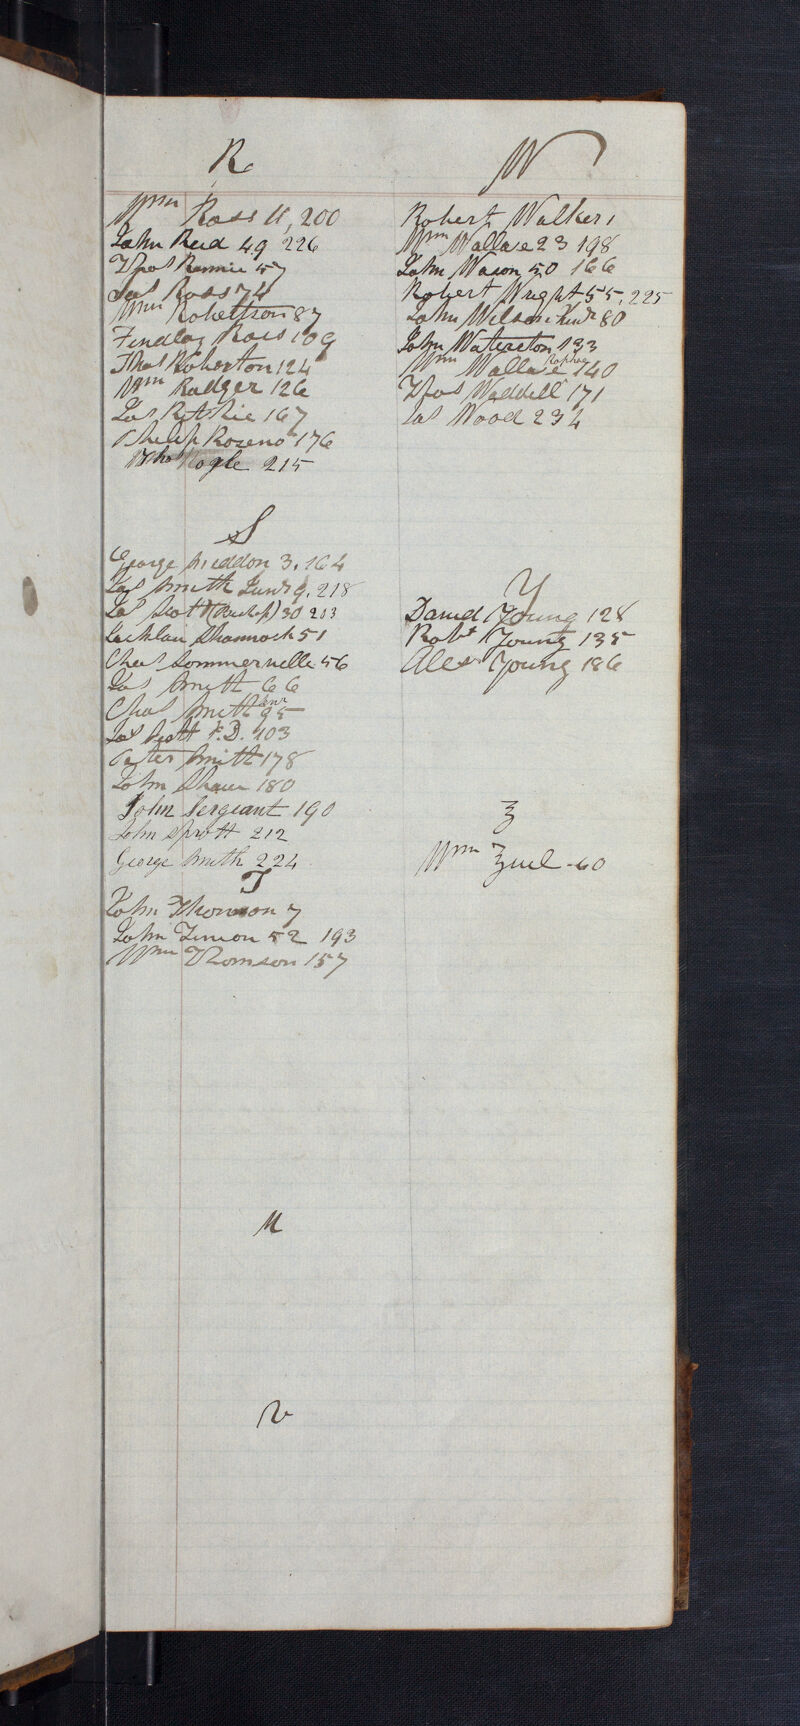 R
Wm Ross 11, 200
John Reid 49 226
Thos Rennie 57
Jas Ross 74
Wm Robertson 87
Findlay Ross 109
Thos Roberton 124
Wm Rodger 126
Jas Ritchie 167
Philip Rozeno 176
Thos Rogle 215
S
George Seddon 3. 164
Jas Smith Junr 9. 218
Jas Scott 30 213
Lachlan Shannoch 51
Chas Sommerville 56
Jas Smith 66
Chas Smith Senr 95
Jas Scott P.D. 103
Peter Smith 178
John Shaw 180
John Sergeant 190
John Sprott 212
George Smith 224
T
John Thomson 7
John Timon 52 193
Wm Thomson 157
U
V
W
Robert Walker 1
Wm Wallace 23 198
John Wason 50 166
Robert Wright 55, 225
John Wilson Junr 80
John Waterston 133
Wm Wallace 140
Thos Weddell 171
Jas Wood 234
Y
David Young 128
Robt Young 135
Alexr Young 186
Z
Wm Zuil 60